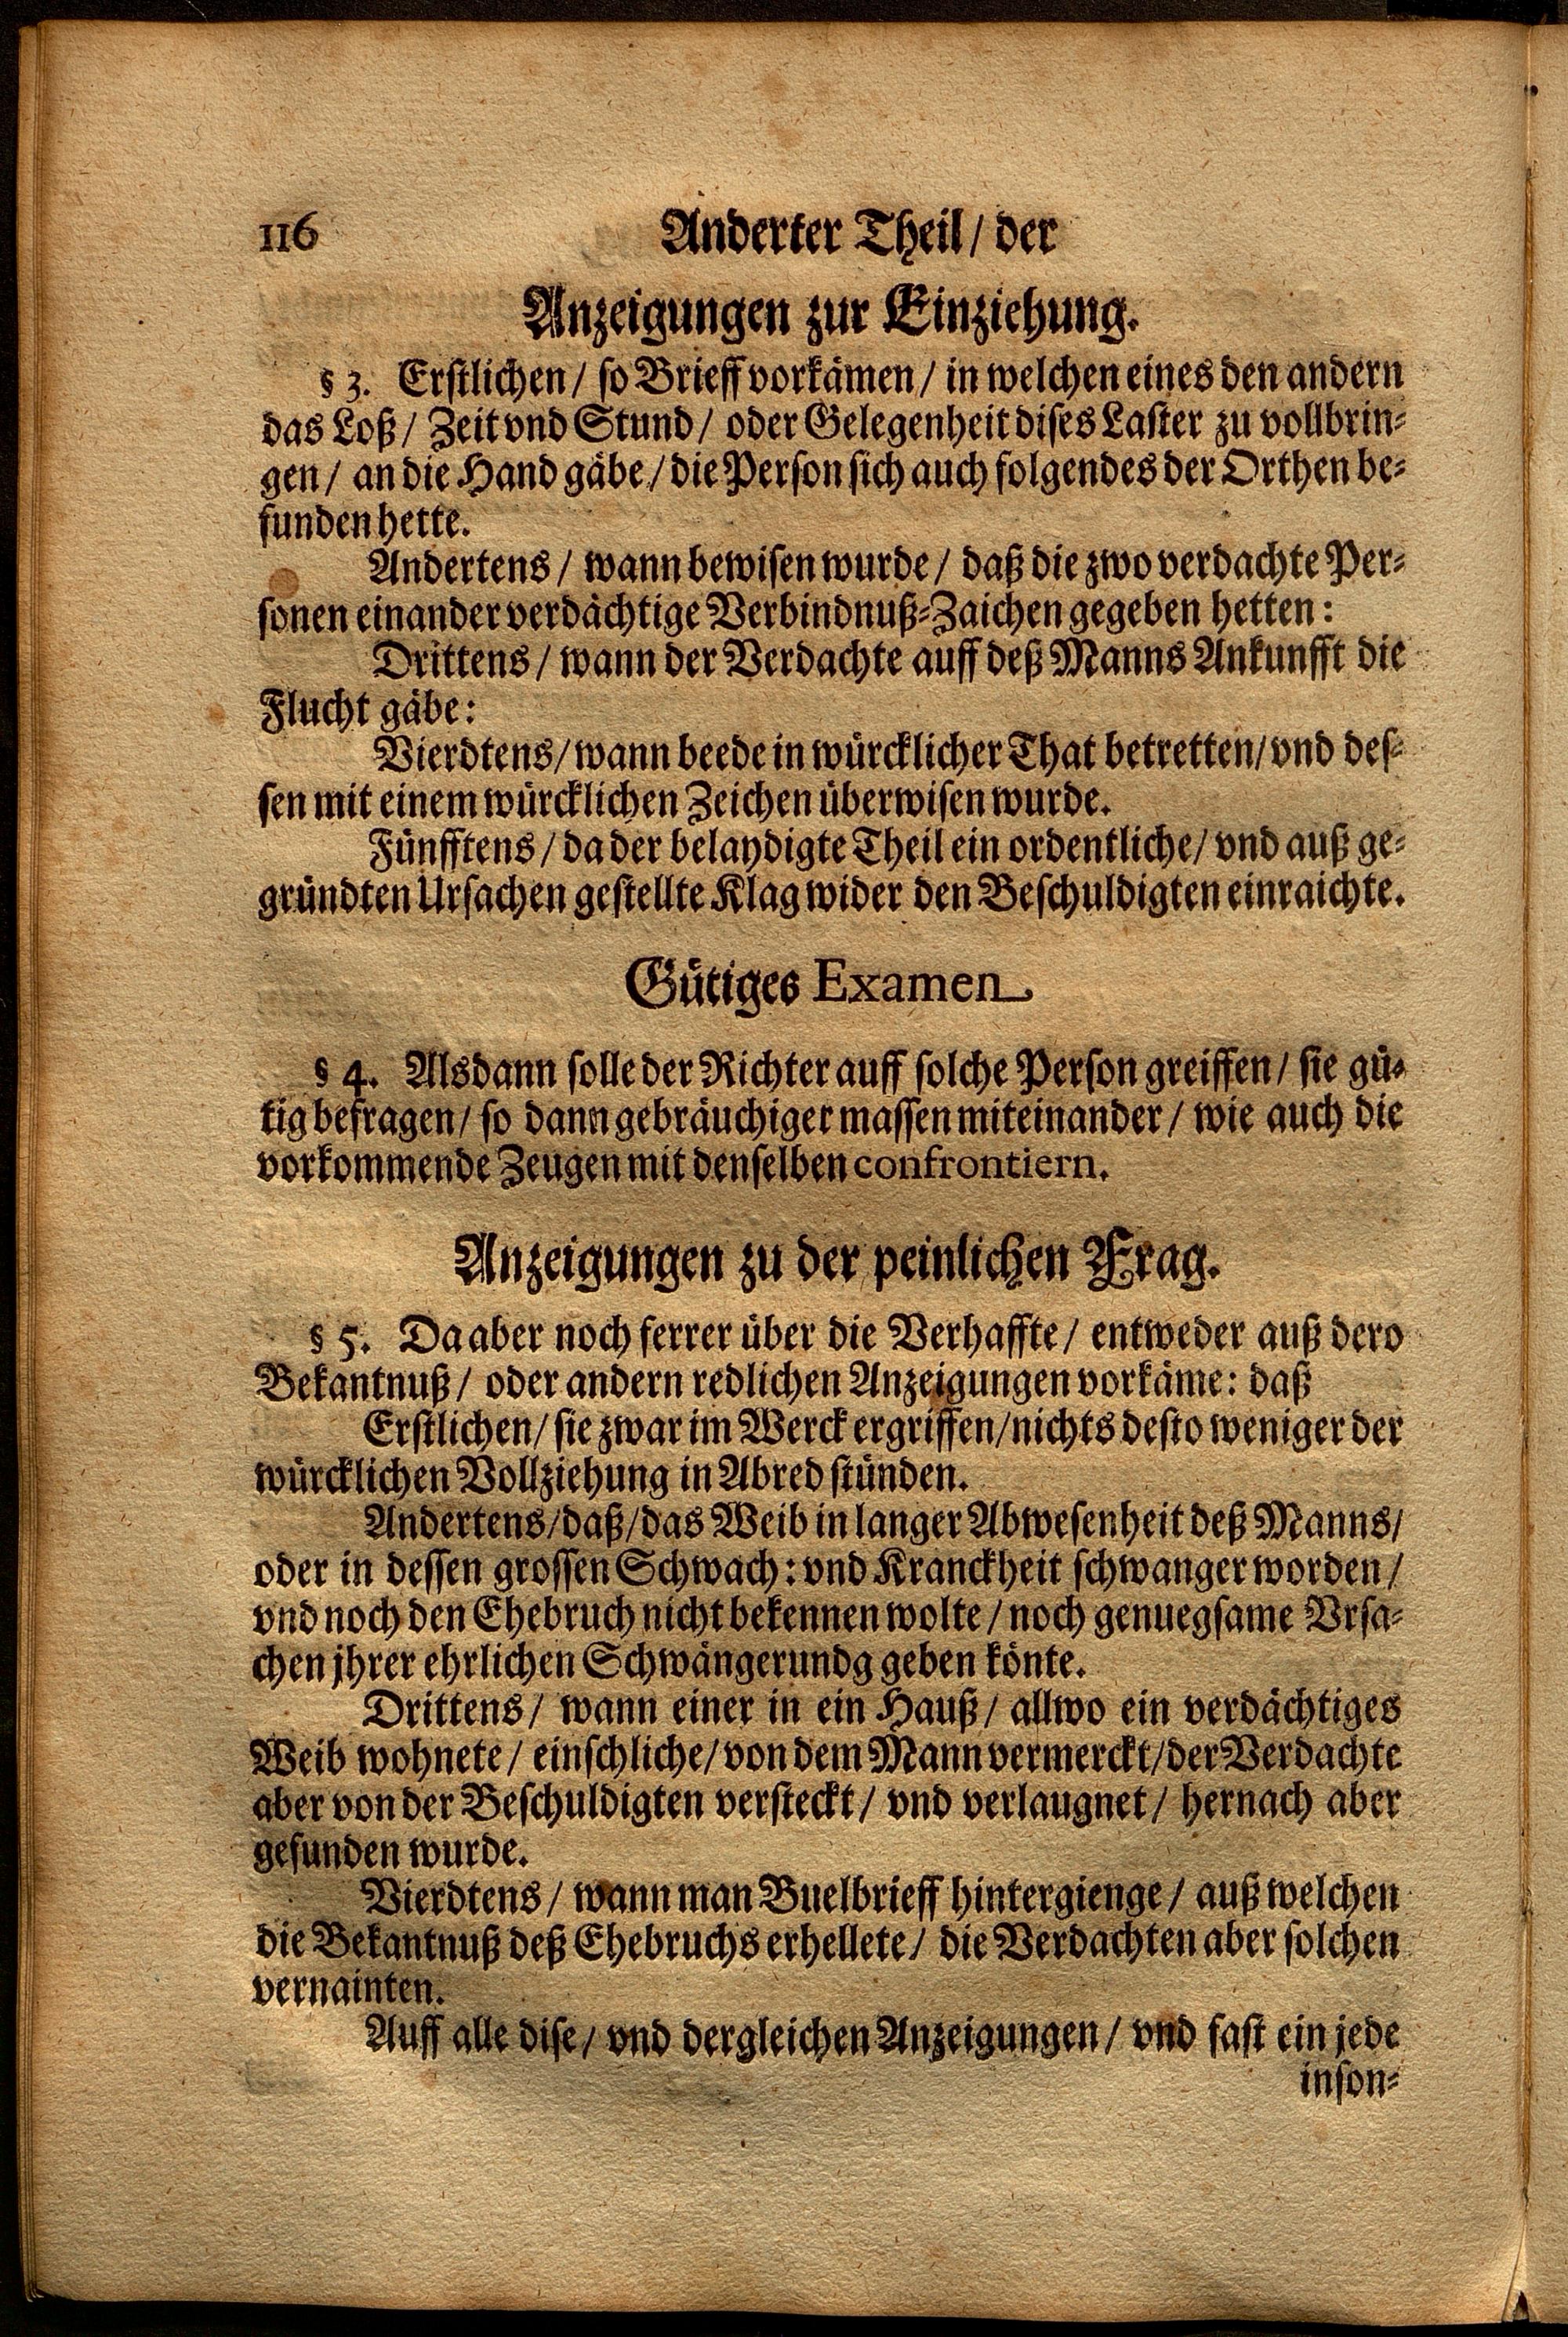 116 Anderter Theil / der
Anzeigungen zur Einziehung.
§ 3. Erstlichen / so Brieff vorkämen / in welchen eines den andern
das Loß / Zeit vnd Stund / oder Gelegenheit dises Laster zu vollbrin-
gen / an die Hand gäbe / die Person sich auch folgendes der Orthen be-
funden hette.
Andertens / wann bewisen wurde / daß die zwo verdachte Per-
sonen einander verdächtige Verbindnuß-Zaichen gegeben hetten:
Drittens / wann der Verdachte auff deß Manns Ankunfft die
Flucht gäbe:
Vierdtens / wann beede in würcklicher That betretten / vnd des-
sen mit einem würcklichen Zeichen überwisen wurde.
Fünfftens / da der belaydigte Theil ein ordentliche / vnd auß ge-
gründten Ursachen gestellte Klag wider den Beschuldigten einraichte.
Gütiges Examen
§ 4. Alsdann solle der Richter auff solche Person greiffen / sie gü-
tig befragen / so dann gebräuchiger massen miteinander / wie auch die
vorkommende Zeugen mit denselben confrontiern.
Anzeigungen zu der peinlichen Frag.
§ 5. Da aber noch ferrer über die Verhaffte / entweder auß dero
Bekantnuß / oder andern redlichen Anzeigungen vorkäme: daß
Erstlichen / sie zwar im Werck ergriffen / nichts desto weniger der
würcklichen Vollziehung in Abred stünden.
Andertens / daß / das Weib in langer Abwesenheit deß Manns /
oder in dessen grossen Schwach: vnd Kranckheit schwanger worden /
vnd noch den Ehebruch nicht bekennen wolte / noch genuegsame Vrsa-
chen jhrer ehrlichen Schwängerundg geben könte.
Drittens / wann einer in ein Hauß / allwo ein verdächtiges
Weib wohnete / einschliche / von dem Mann vermerckt / der Verdachte
aber von der Beschuldigten versteckt / vnd verlaugnet / hernach aber
gefunden wurde.
Vierdtens / wann man Buelbrieff hintergienge / auß welchen
die Bekantnuß deß Ehebruchs erhellete / die Verdachten aber solchen
vernainten.
Auff alle dise / vnd dergleichen Anzeigungen / vnd fast ein jede
inson-